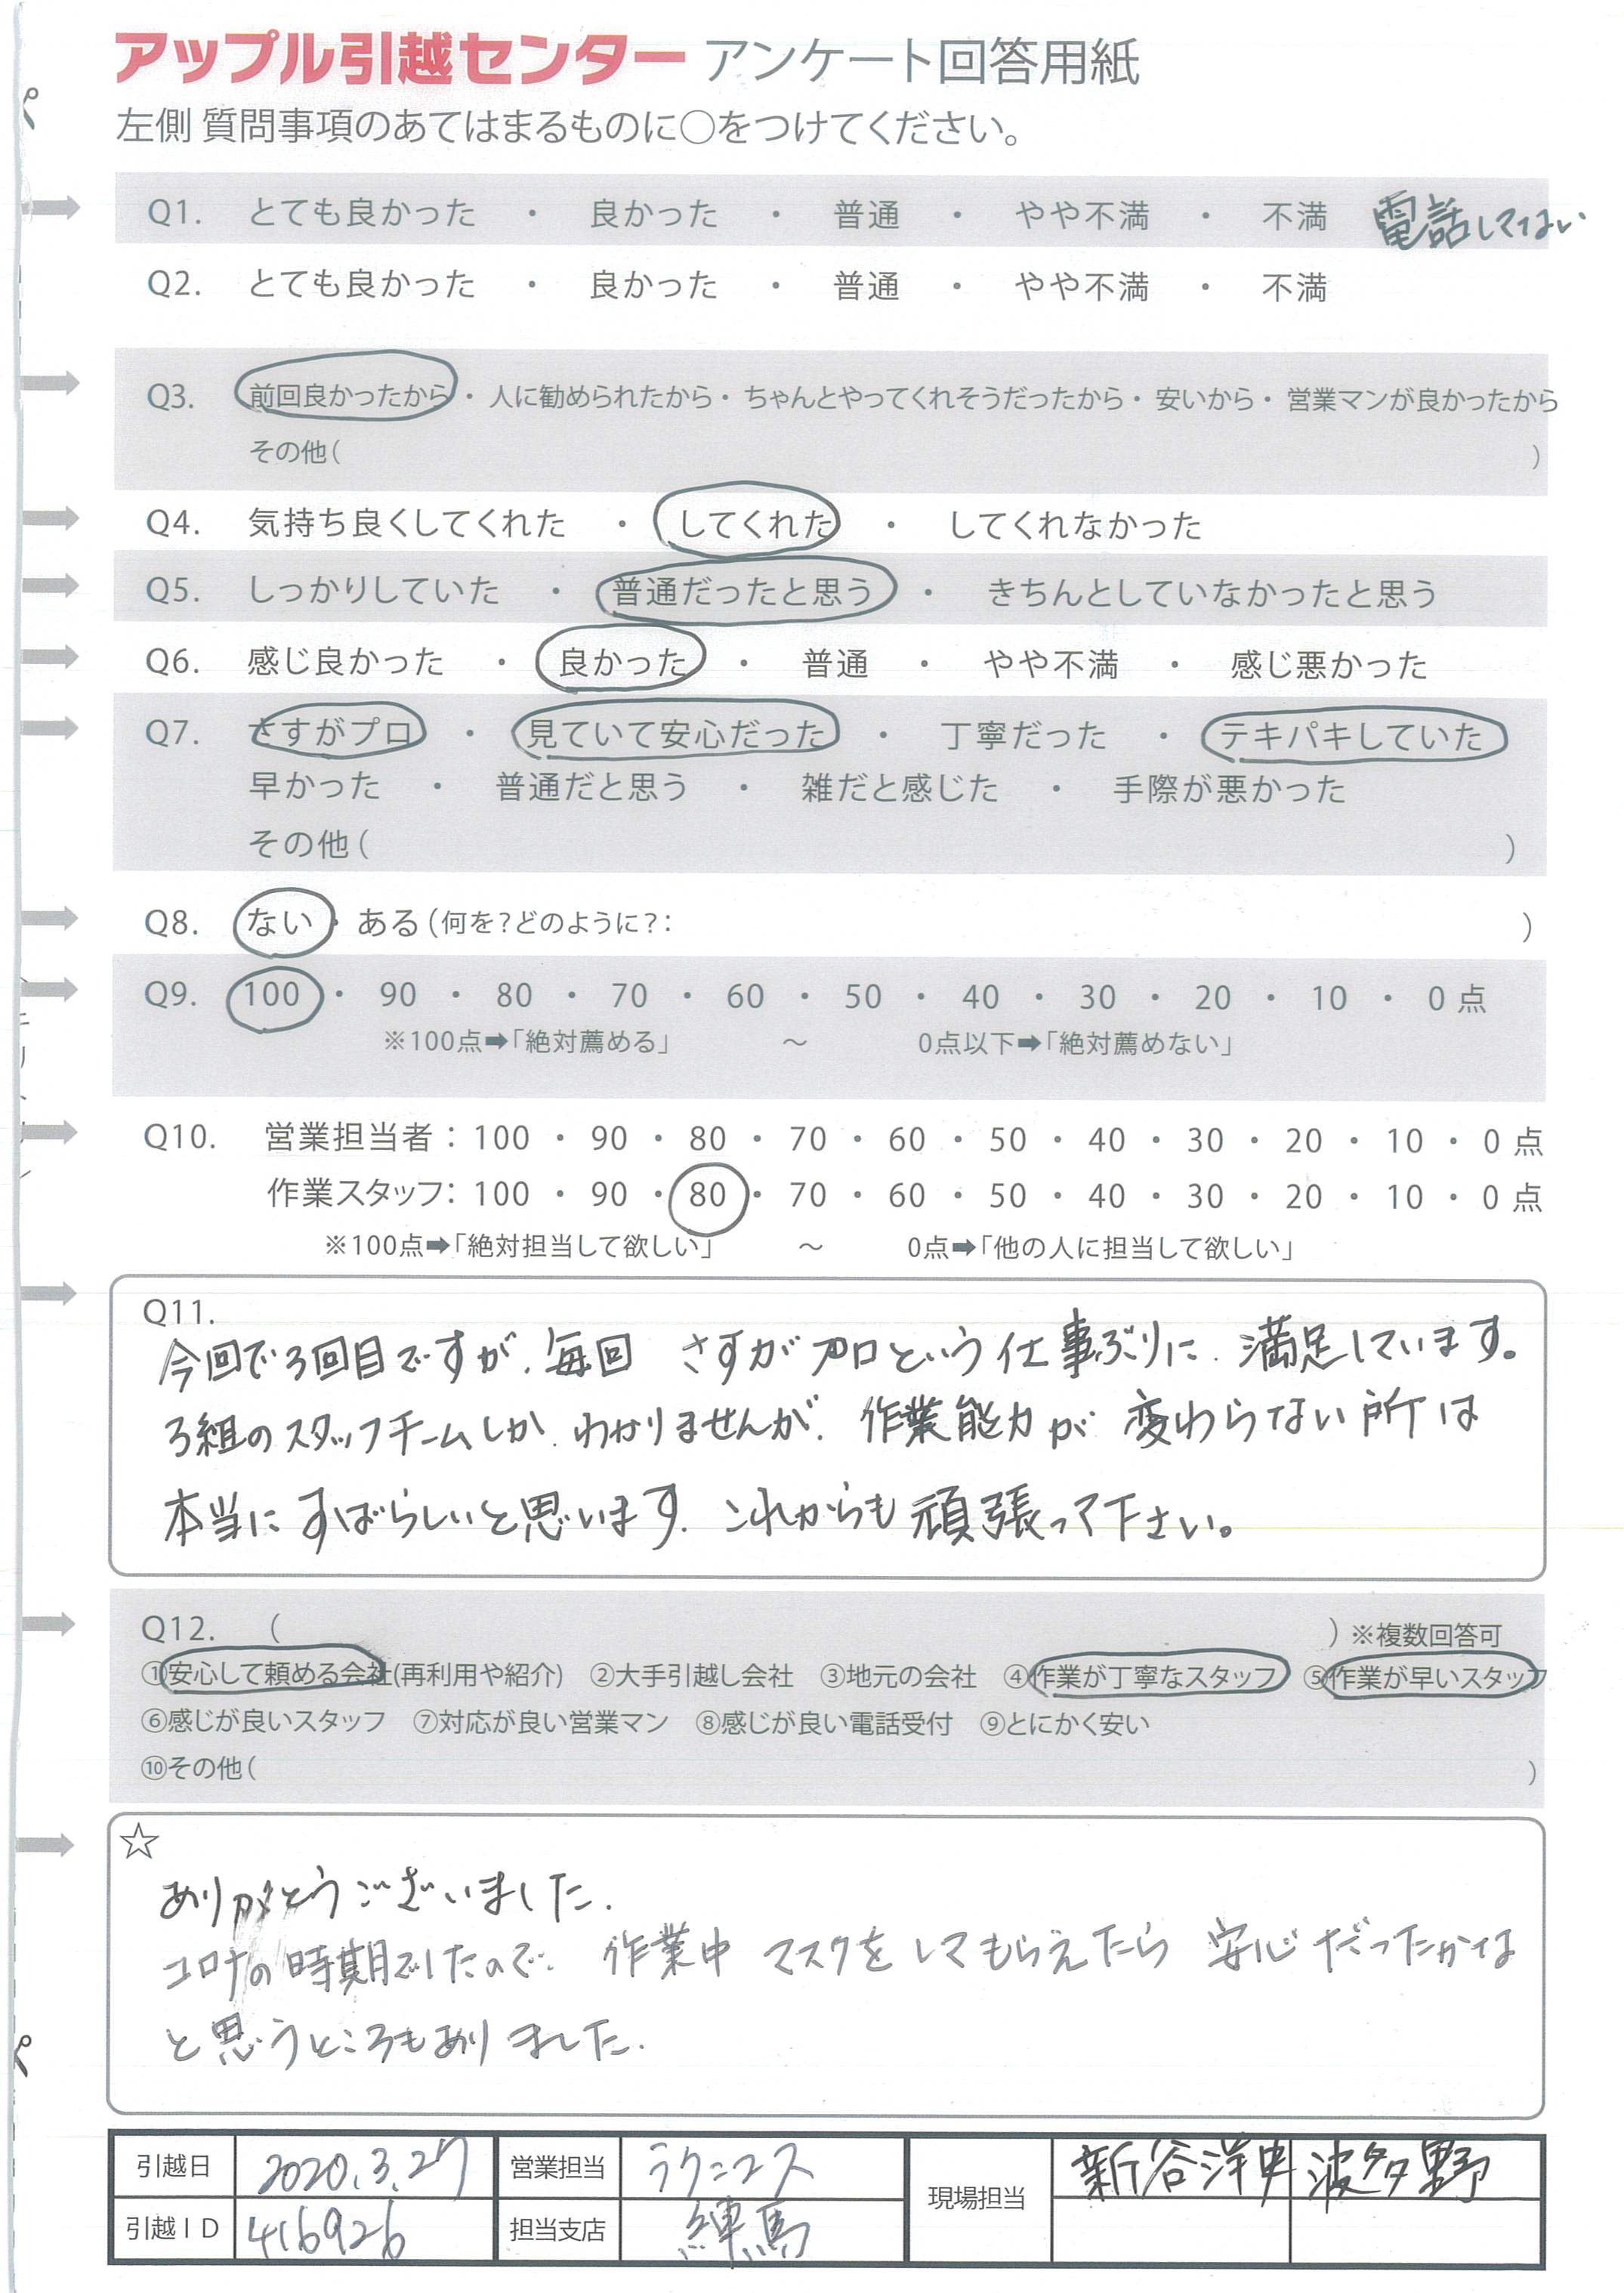 アップル引越センター アンケート回答用紙
左側 質問事項のあてはまるものに○をつけてください。
Q1. とても良かった ・ 良かった ・ 普通 ・ やや不満 ・ 不満 電話してない
Q2. とても良かった ・ 良かった ・ 普通 ・ やや不満 ・ 不満
Q3. 前回良かったから ・ 人に勧められたから ・ ちゃんとやってくれそうだったから ・ 安いから ・ 営業マンが良かったから
その他( )
Q4. 気持ち良くしてくれた ・ してくれた ・ してくれなかった
Q5. しっかりしていた ・ 普通だったと思う ・ きちんとしていなかったと思う
Q6. 感じ良かった ・ 良かった ・ 普通 ・ やや不満 ・ 感じ悪かった
Q7. さすがプロ ・ 見ていて安心だった ・ 丁寧だった ・ テキパキしていた
早かった ・ 普通だと思う ・ 雑だと感じた ・ 手際が悪かった
その他( )
Q8. ない ・ ある(何を?どのように?: )
Q9. 100 ・ 90 ・ 80 ・ 70 ・ 60 ・ 50 ・ 40 ・ 30 ・ 20 ・ 10 ・ 0 点
※100点➡「絶対薦める」 ～ 0点以下➡「絶対薦めない」
Q10. 営業担当者:100 ・ 90 ・ 80 ・ 70 ・ 60 ・ 50 ・ 40 ・ 30 ・ 20 ・ 10 ・ 0 点
作業スタッフ:100 ・ 90 ・ 80 ・ 70 ・ 60 ・ 50 ・ 40 ・ 30 ・ 20 ・ 10 ・ 0 点
※100点➡「絶対担当して欲しい」 ～ 0点➡「他の人に担当して欲しい」
Q11.
今回で3回目ですが、毎回 さすがプロという仕事ぶりに、満足しています。
3組のスタッフチームしか、わかりませんが、作業能力が 変わらない所は
本当にすばらしいと思います、これからも頑張って下さい。
Q12. ( ) ※複数回答可
①安心して頼める会社(再利用や紹介) ②大手引越し会社 ③地元の会社 ④作業が丁寧なスタッフ ⑤作業が早いスタッフ
⑥感じが良いスタッフ ⑦対応が良い営業マン ⑧感じが良い電話受付 ⑨とにかく安い
⑩その他( )
☆
ありがとうございました.
コロナの時期でしたので、作業中 マスクを してもらえたら 安心だったかな
と思うところもありました.
引越日 2020.3.27 営業担当 ラクニコス 現場担当 新谷洋申 波多野
引越ID 416926 担当支店 練馬